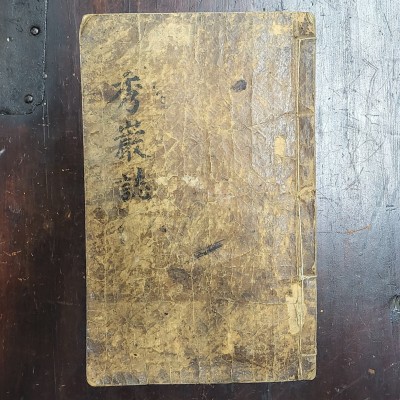 秀巖誌